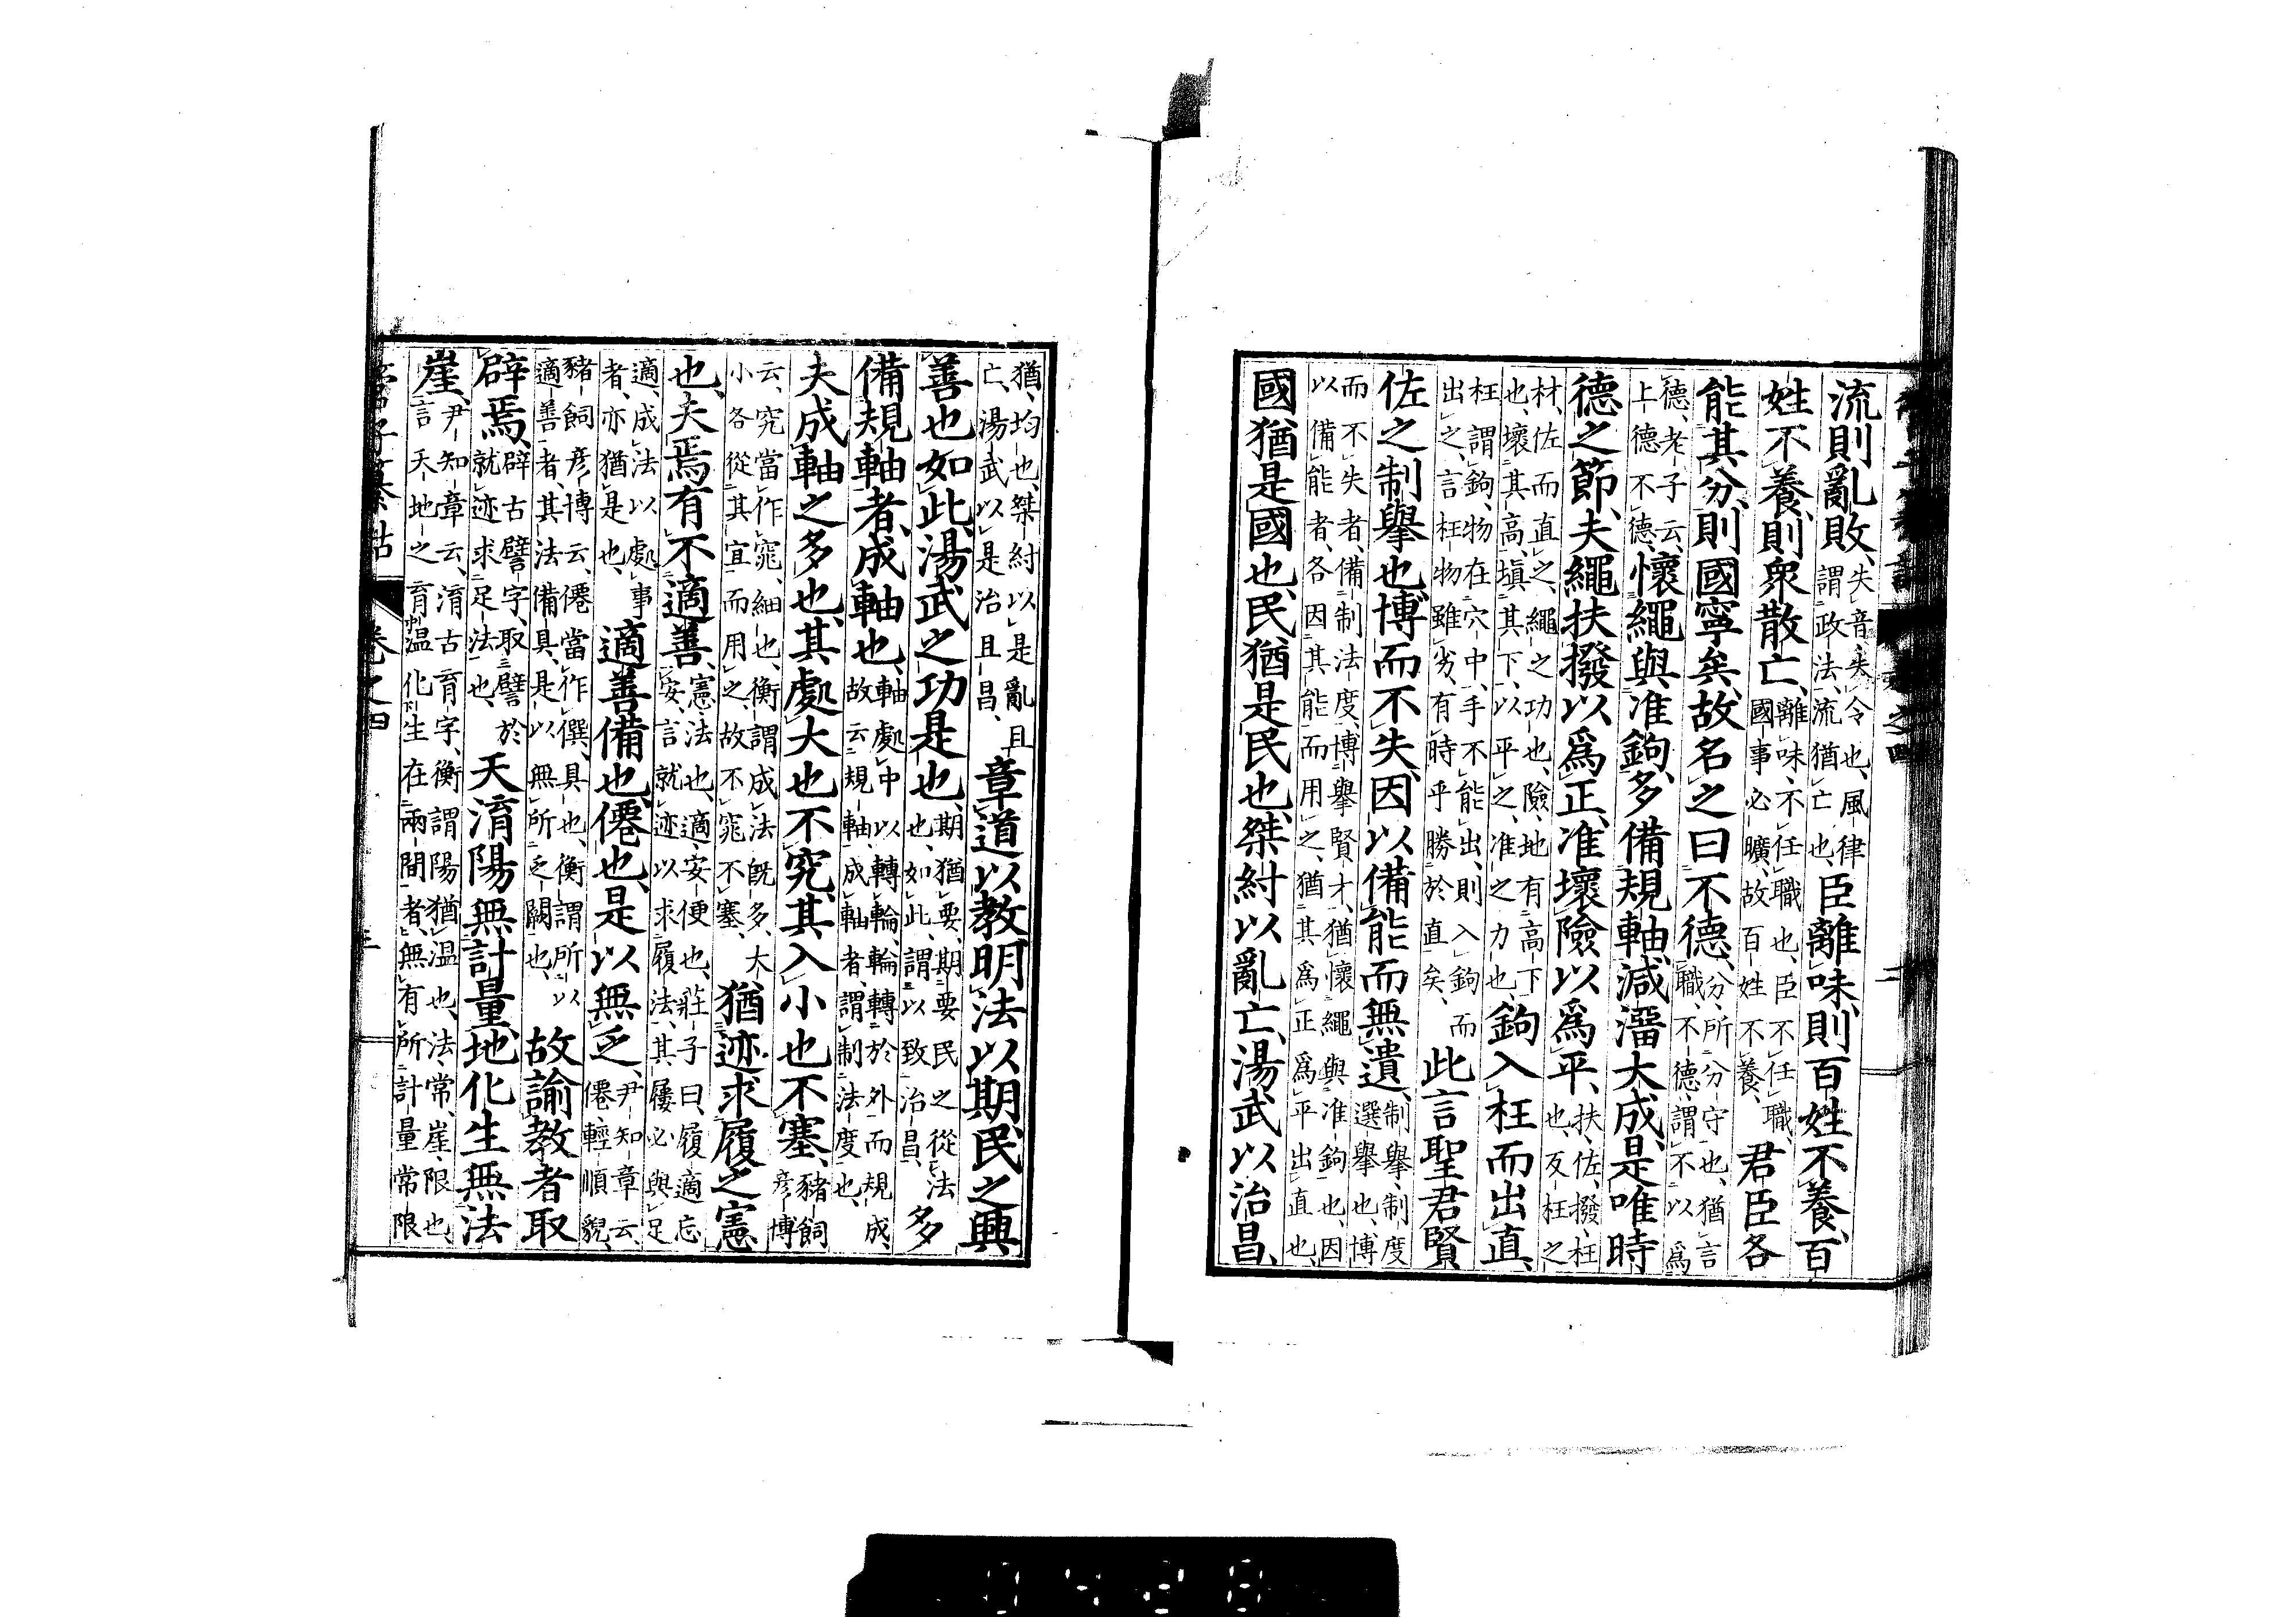 管子纂詁 卷之四 二
流則亂敗、
失音矢、令也、風律
謂政法、流猶亡也、
臣離味、則百姓不養、百
姓不養、則衆散亡、
離味、不任職也、臣不任職、
國事必曠、故百姓不養、
君臣各
能其分、則國寧矣、故名之曰不德、
分、所分守也、猶言
職、不德、謂不以爲
德、老子云、
上德不德、
懷繩與准鉤、多備規軸、減溜大成、是唯時
德之節、夫繩扶撥以爲正、准壞險以爲平、
扶、佐、撥、枉
也、反枉之
材、佐而直之、繩之功也、險、地有高下
也、壞其高、塡其下、以平之、准之力也、
鉤入枉而出直、
枉謂鉤、物在穴中、手不能出、則入鉤而
出之、言枉物雖劣、有時乎勝於直矣、
此言聖君賢
佐之制擧也、博而不失、因以備能而無遺、
制擧、制度
選擧也、博
而不失者、備制法度、博擧賢才、猶懷繩與准鉤也、因
以備能者、各因其能而用之、猶其爲正爲平出直也、
國猶是國也、民猶是民也、桀紂以亂亡、湯武以治昌、
猶、均也、桀紂以是亂且
亡、湯武以是治且昌、
章道以教明法以期、民之興
善也如此、湯武之功是也、
期猶要、期要民之從法
也、如此、謂以致治昌、
多
備規軸者、成軸也、
軸處中以轉輪、輪轉於外而規成、
故云規軸、成軸者、謂制法度也、
夫成軸之多也、其處大也不究、其入小也不塞、
豬飼
彦博
云、究當作窕、細也、衡謂成法既多、大
小各從其宜而用之、故不窕不塞、
猶迹求履之憲
也、夫焉有不適善、
憲、法也、適、安便也、莊子曰、履適忘
安、言就迹以求履法、其屨必與足
適、成法以處事
者、亦猶是也、
適善備也、僊也、是以無乏、
尹知章云、
僊、輕順貌、
豬飼彦博云、僊當作僎、具也、衡謂所以
適善者、其法備具、是以無所乏闕也、
故諭教者取
辟焉、
辟古譬字、取譬於
就迹求足法也、
天淯陽無計量、地化生無法
崖、
尹知章云、淯古育字、衡謂陽猶溫也、法、常、崖、限也、
言天地之育溫化生在兩間者、無有所計量常限
管子纂詁 卷之四 三